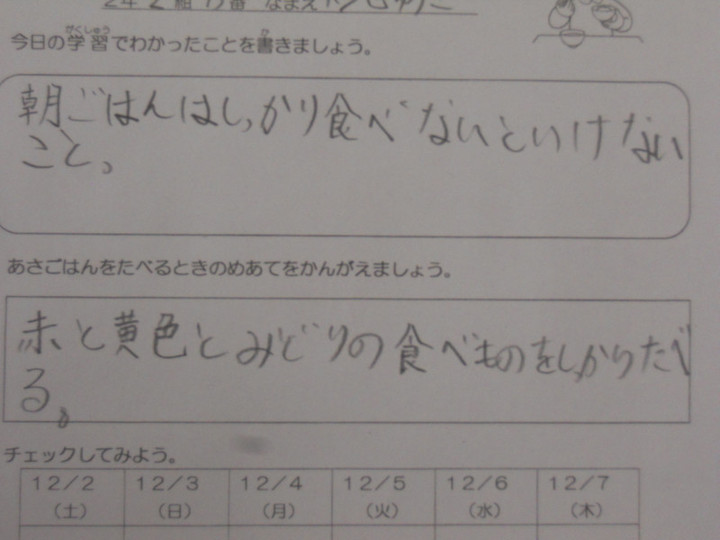 2年 2組
今日の学習でわかったことを書きましょう。
朝ごはんはしっかり食べないといけない
こと。
あさごはんをたべるときのめあてをかんがえましょう。
赤と黄色とみどりの食べものをしっかりたべ
る。
チェックしてみよう。
12/2 12/3 12/4 12/5 12/6 12/7
(土) (日) (月) (火) (水) (木)